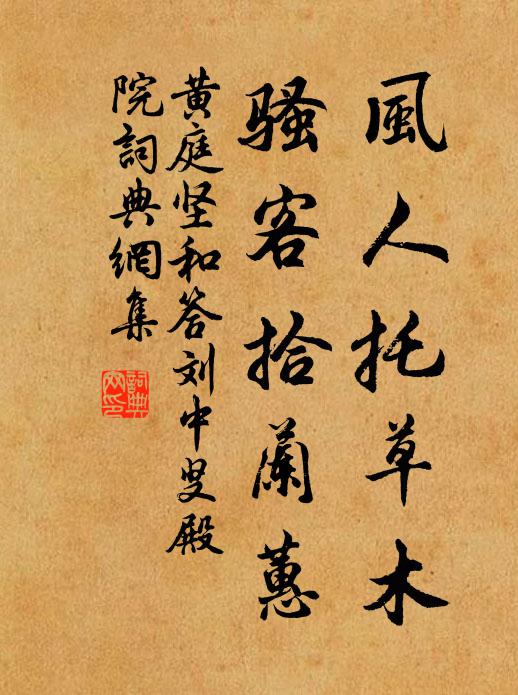 風人托草木
騷客拾蘭蕙
黄庭坚和答刘中叟殿
院詞典網集
詞典
网印